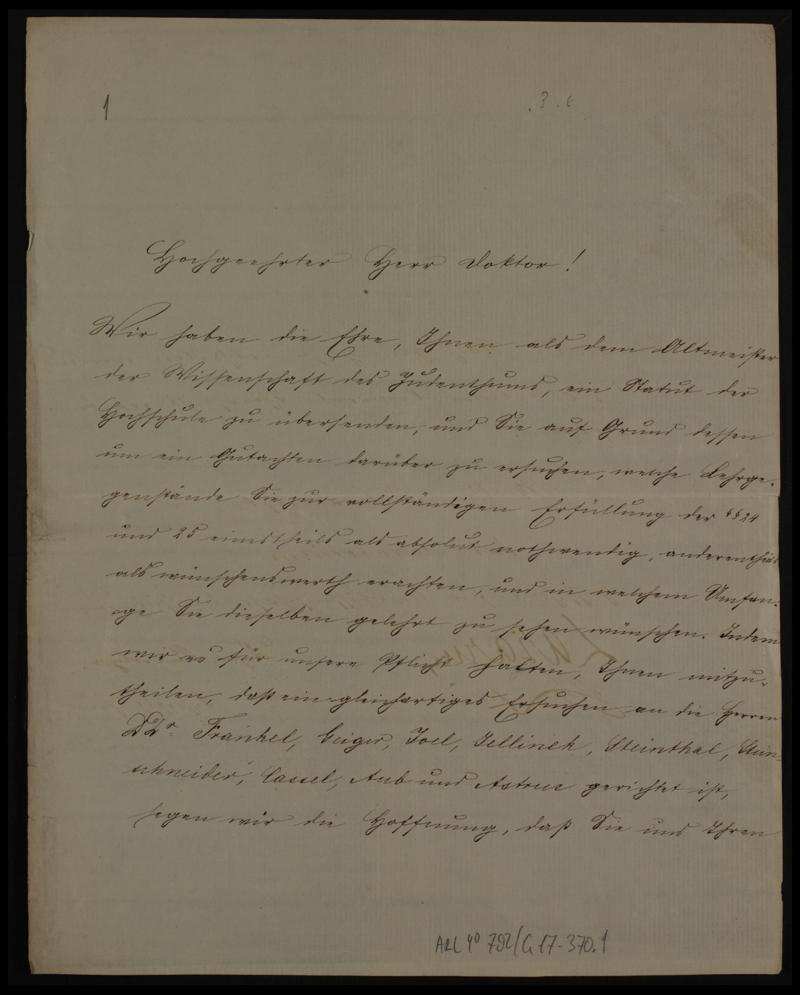 1
Hochgeehrter Herr Doktor!
Wir haben die Ehre, Ihnen als dem Altmeister
der Wissenschaft des Judenthums, ein Statut der
Hochschule zu übersenden, und Sie auf Grund dessen
um ein Gutachten darüber zu ersuchen, welche Lehrge-
genstände Sie zur vollständigen Erfüllung der §§ 24
und 25 einestheils als absolut nothwendig, anderentheils
als wünschenswerth erachten, und in welchem Umfan-
ge Sie dieselben gelehrt zu sehen wünschen. Indem
wir es für unsere Pflicht halten, Ihnen mitzu-
theilen, daß ein gleichartiges Ersuchen an die Herren
DDr. Frankel, Geiger, Joel, Jellinek, Steinthal, Stein-
schneider, Cassel, Aub und Astruc gerichtet ist,
hegen wir die Hoffnung, daß Sie uns Ihren
ARC 4° 792/G17-370.1